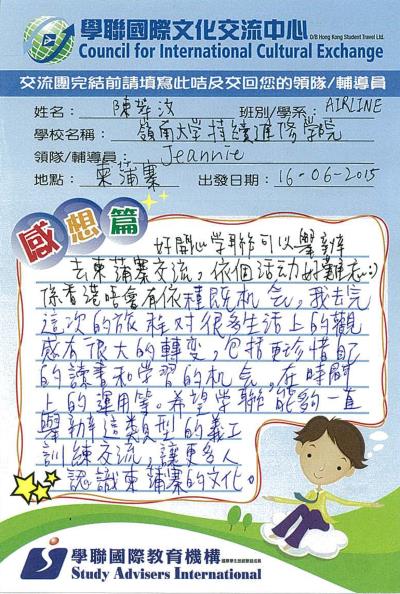 學聯國際文化交流中心
D/B Hong Kong Student Travel Ltd.
Council for International Cultural Exchange
交流團完結前請填寫此咭及交回您的領隊/輔導員
姓名： 陳 汝 班別/學系： AIRLINE
學校名稱： 嶺南大學持續進修學院
領隊/輔導員： Jeannie
地點： 柬蒲寨 出發日期： 16-06-2015
感想篇
好開心學聯可以舉辦
去柬蒲寨交流，依個活动好難忘:)
係香港唔會有依種既机会，我去完
這次的旅程对很多生活上的觀
感有很大的轉变，包括更珍惜自己
的讀書和学習的机会，在時間
上的運用等。希望学聯能夠一直
舉辦這類型的義工
訓練交流，讓更多人
認識柬蒲寨的文化。
學聯國際教育機構
Study Advisers International